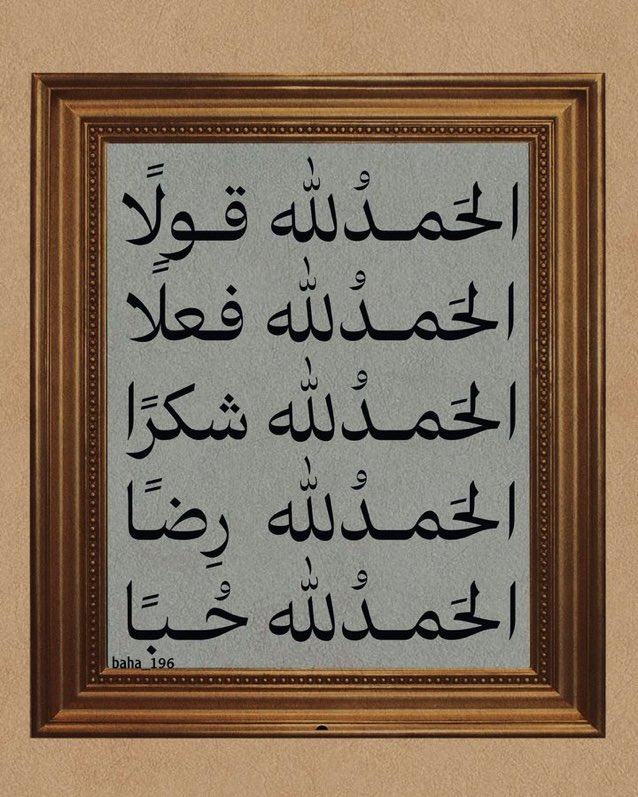 الحَمـدُلله قـولًا
الحَمـدُلله فعلًا
الحَمـدُلله شكرًا
الحَمـدُلله رِضـًا
الحَمـدُلله حُـبـًا
baha_196